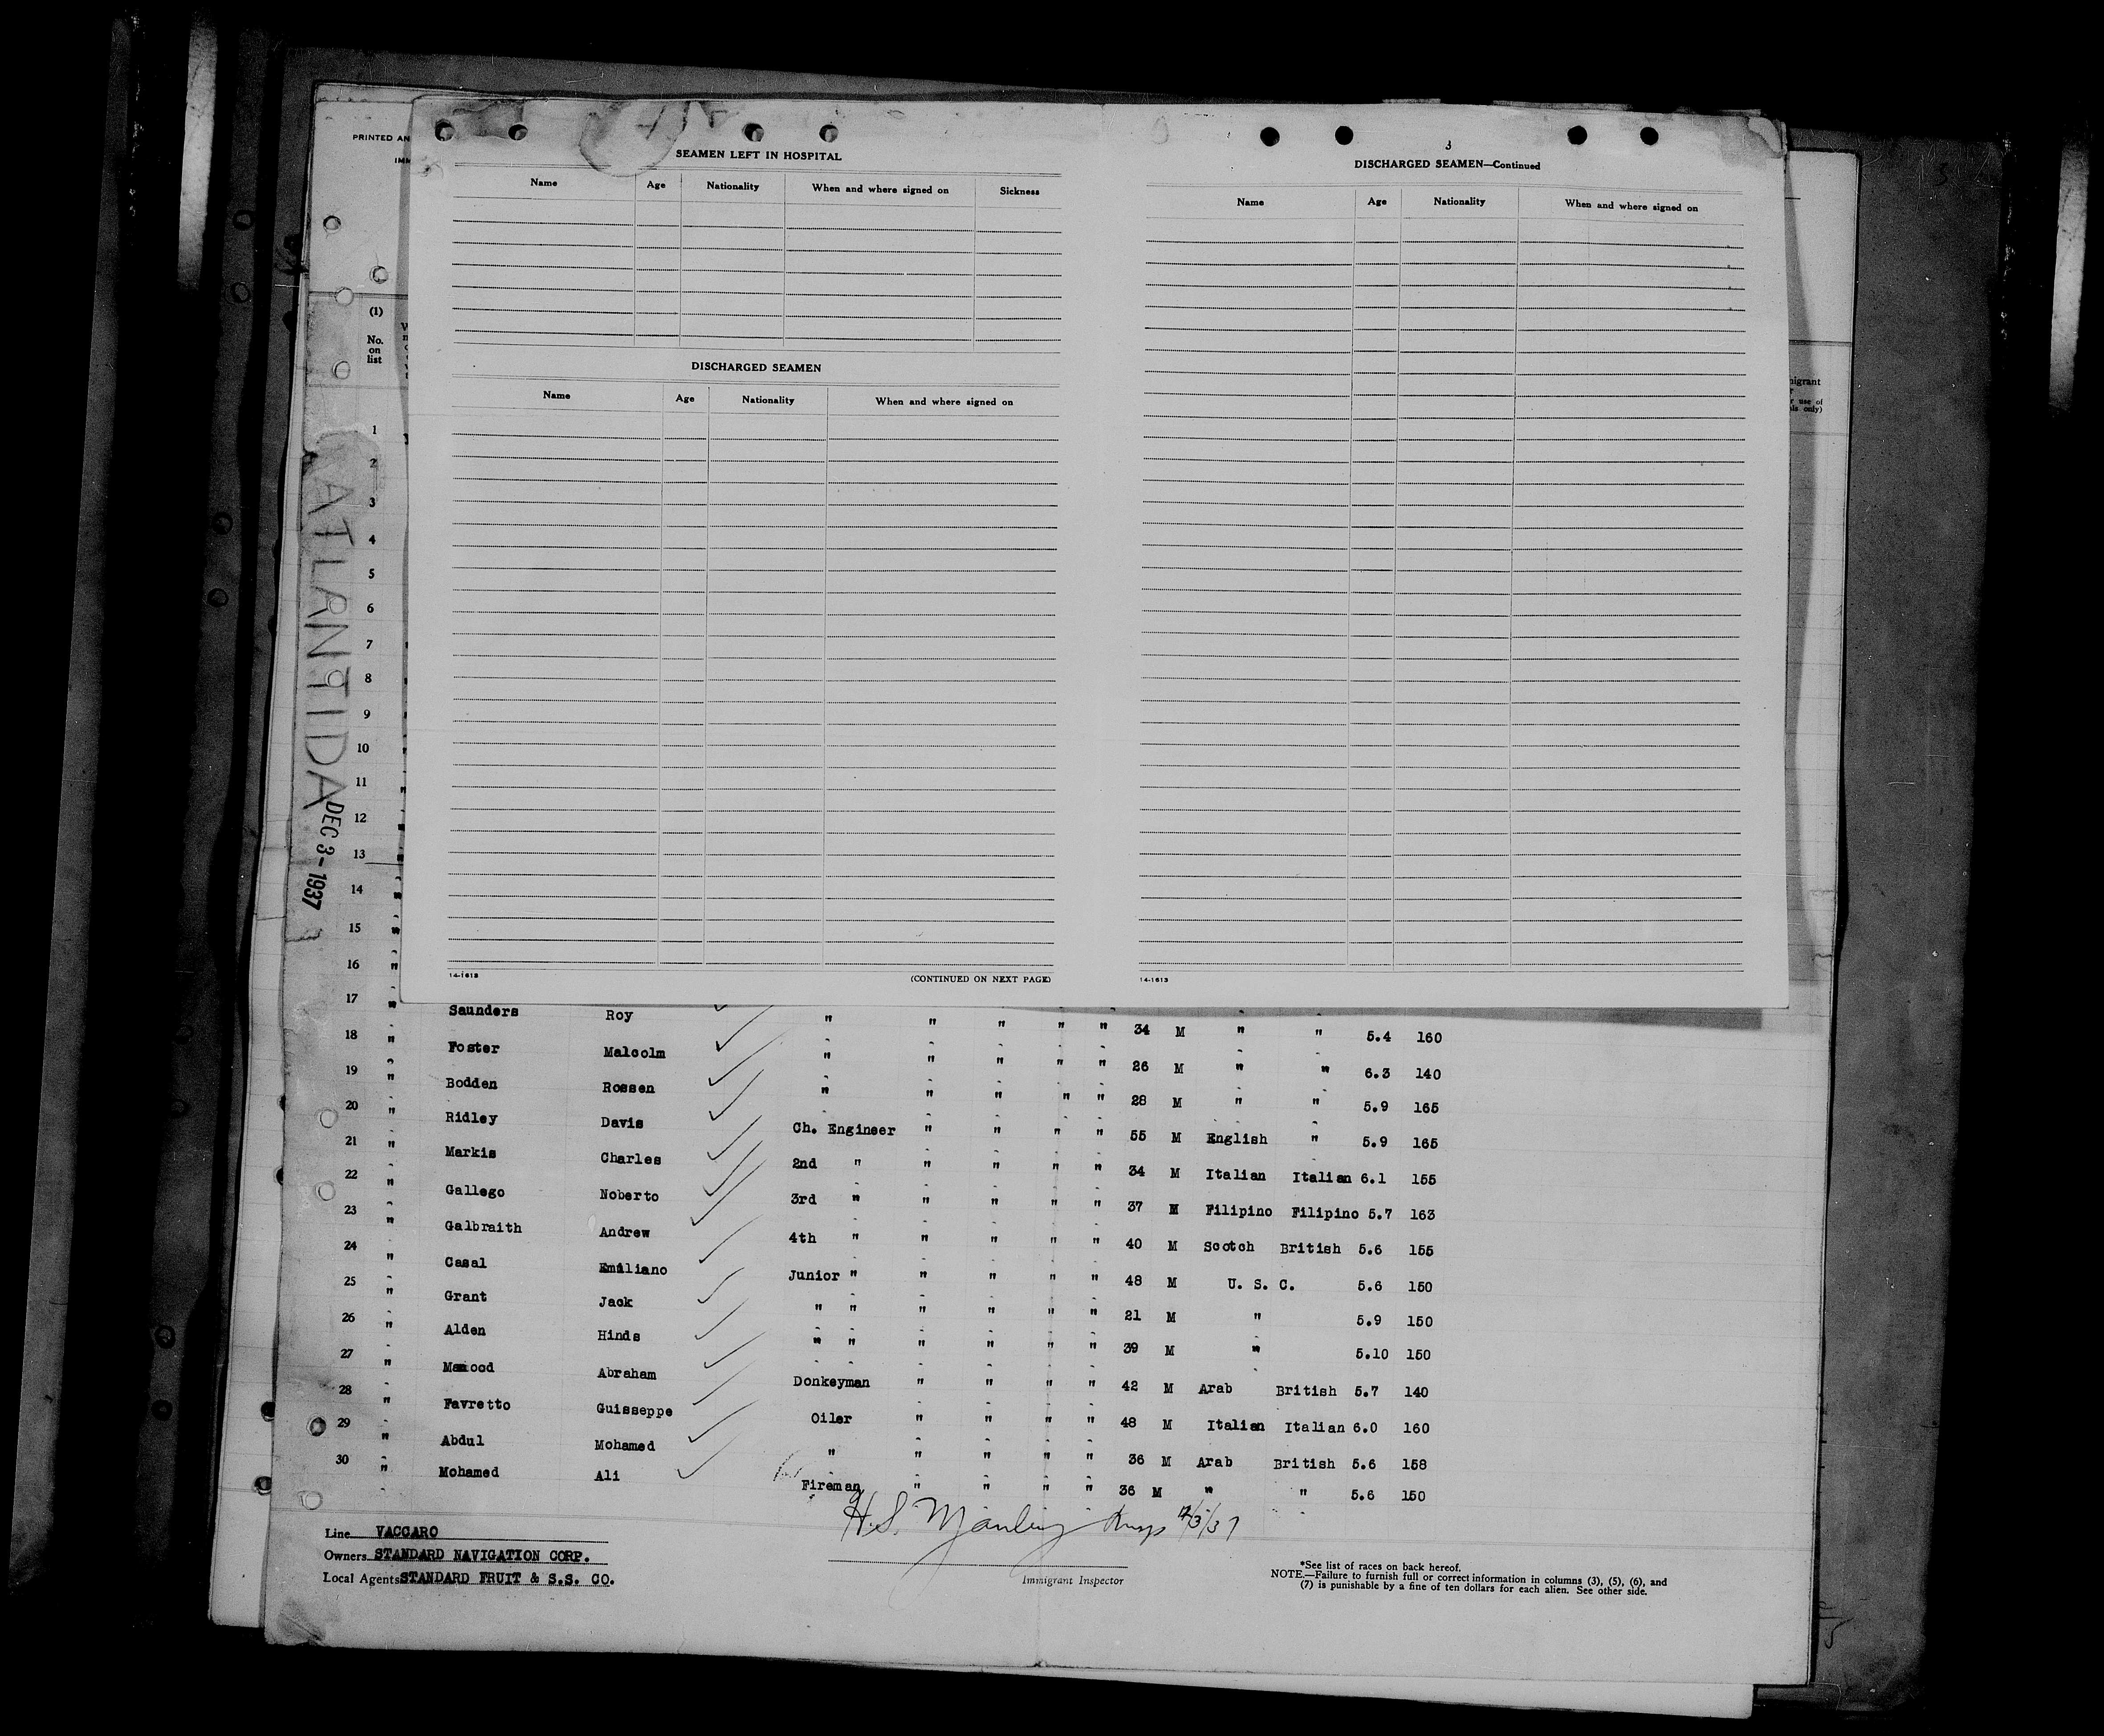 PRINTED AN
IMM
SEAMEN LEFT IN HOSPITAL
Name Age Nationality When and where signed on Sickness
DISCHARGED SEAMEN
Name Age Nationality When and where signed on
14-1613
(CONTINUED ON NEXT PAGE)
3
DISCHARGED SEAMEN—Continued
Name Age Nationality When and where signed on
14-1613
(1)
No.
on
list
migrant
r use of
ls only)
ATLANTIDA
DEC 3-1937
1
2
3
4
5
6
7
8
9
10
11
12
13
14
15 "
16 "
17 " Saunders Roy " " " " " 34 M " " 5.4 160
18 " Foster Malcolm " " " " " 26 M " " 6.3 140
19 " Bodden Rossen " " " " " 28 M " " 5.9 165
20 " Ridley Davis Ch. Engineer " " " " 55 M English " 5.9 165
21 " Markis Charles 2nd " " " " " 34 M Italian Italian 6.1 155
22 " Gallego Noberto 3rd " " " " " 37 M Filipino Filipino 5.7 163
23 " Galbraith Andrew 4th " " " " " 40 M Scotch British 5.6 155
24 " Casal Emiliano Junior " " " " " 48 M U. S. C. 5.6 150
25 " Grant Jack " " " " " " 21 M " 5.9 150
26 " Alden Hinds " " " " " " 39 M " 5.10 150
27 " Abraham Donkeyman " " " " 42 M Arab British 5.7 140
28 " Favretto Guisseppe Oiler " " " " 48 M Italian Italian 6.0 160
29 " Abdul Mohamed " " " " " 36 M Arab British 5.6 158
30 " Mohamed Ali Fireman " " " " 36 M " " 5.6 150
12/3/37
Line VACCARO
Owners STANDARD NAVIGATION CORP.
Local Agents STANDARD FRUIT & S.S. CO.
Immigrant Inspector
*See list of races on back hereof.
NOTE.—Failure to furnish full or correct information in columns (3), (5), (6), and
(7) is punishable by a fine of ten dollars for each alien. See other side.